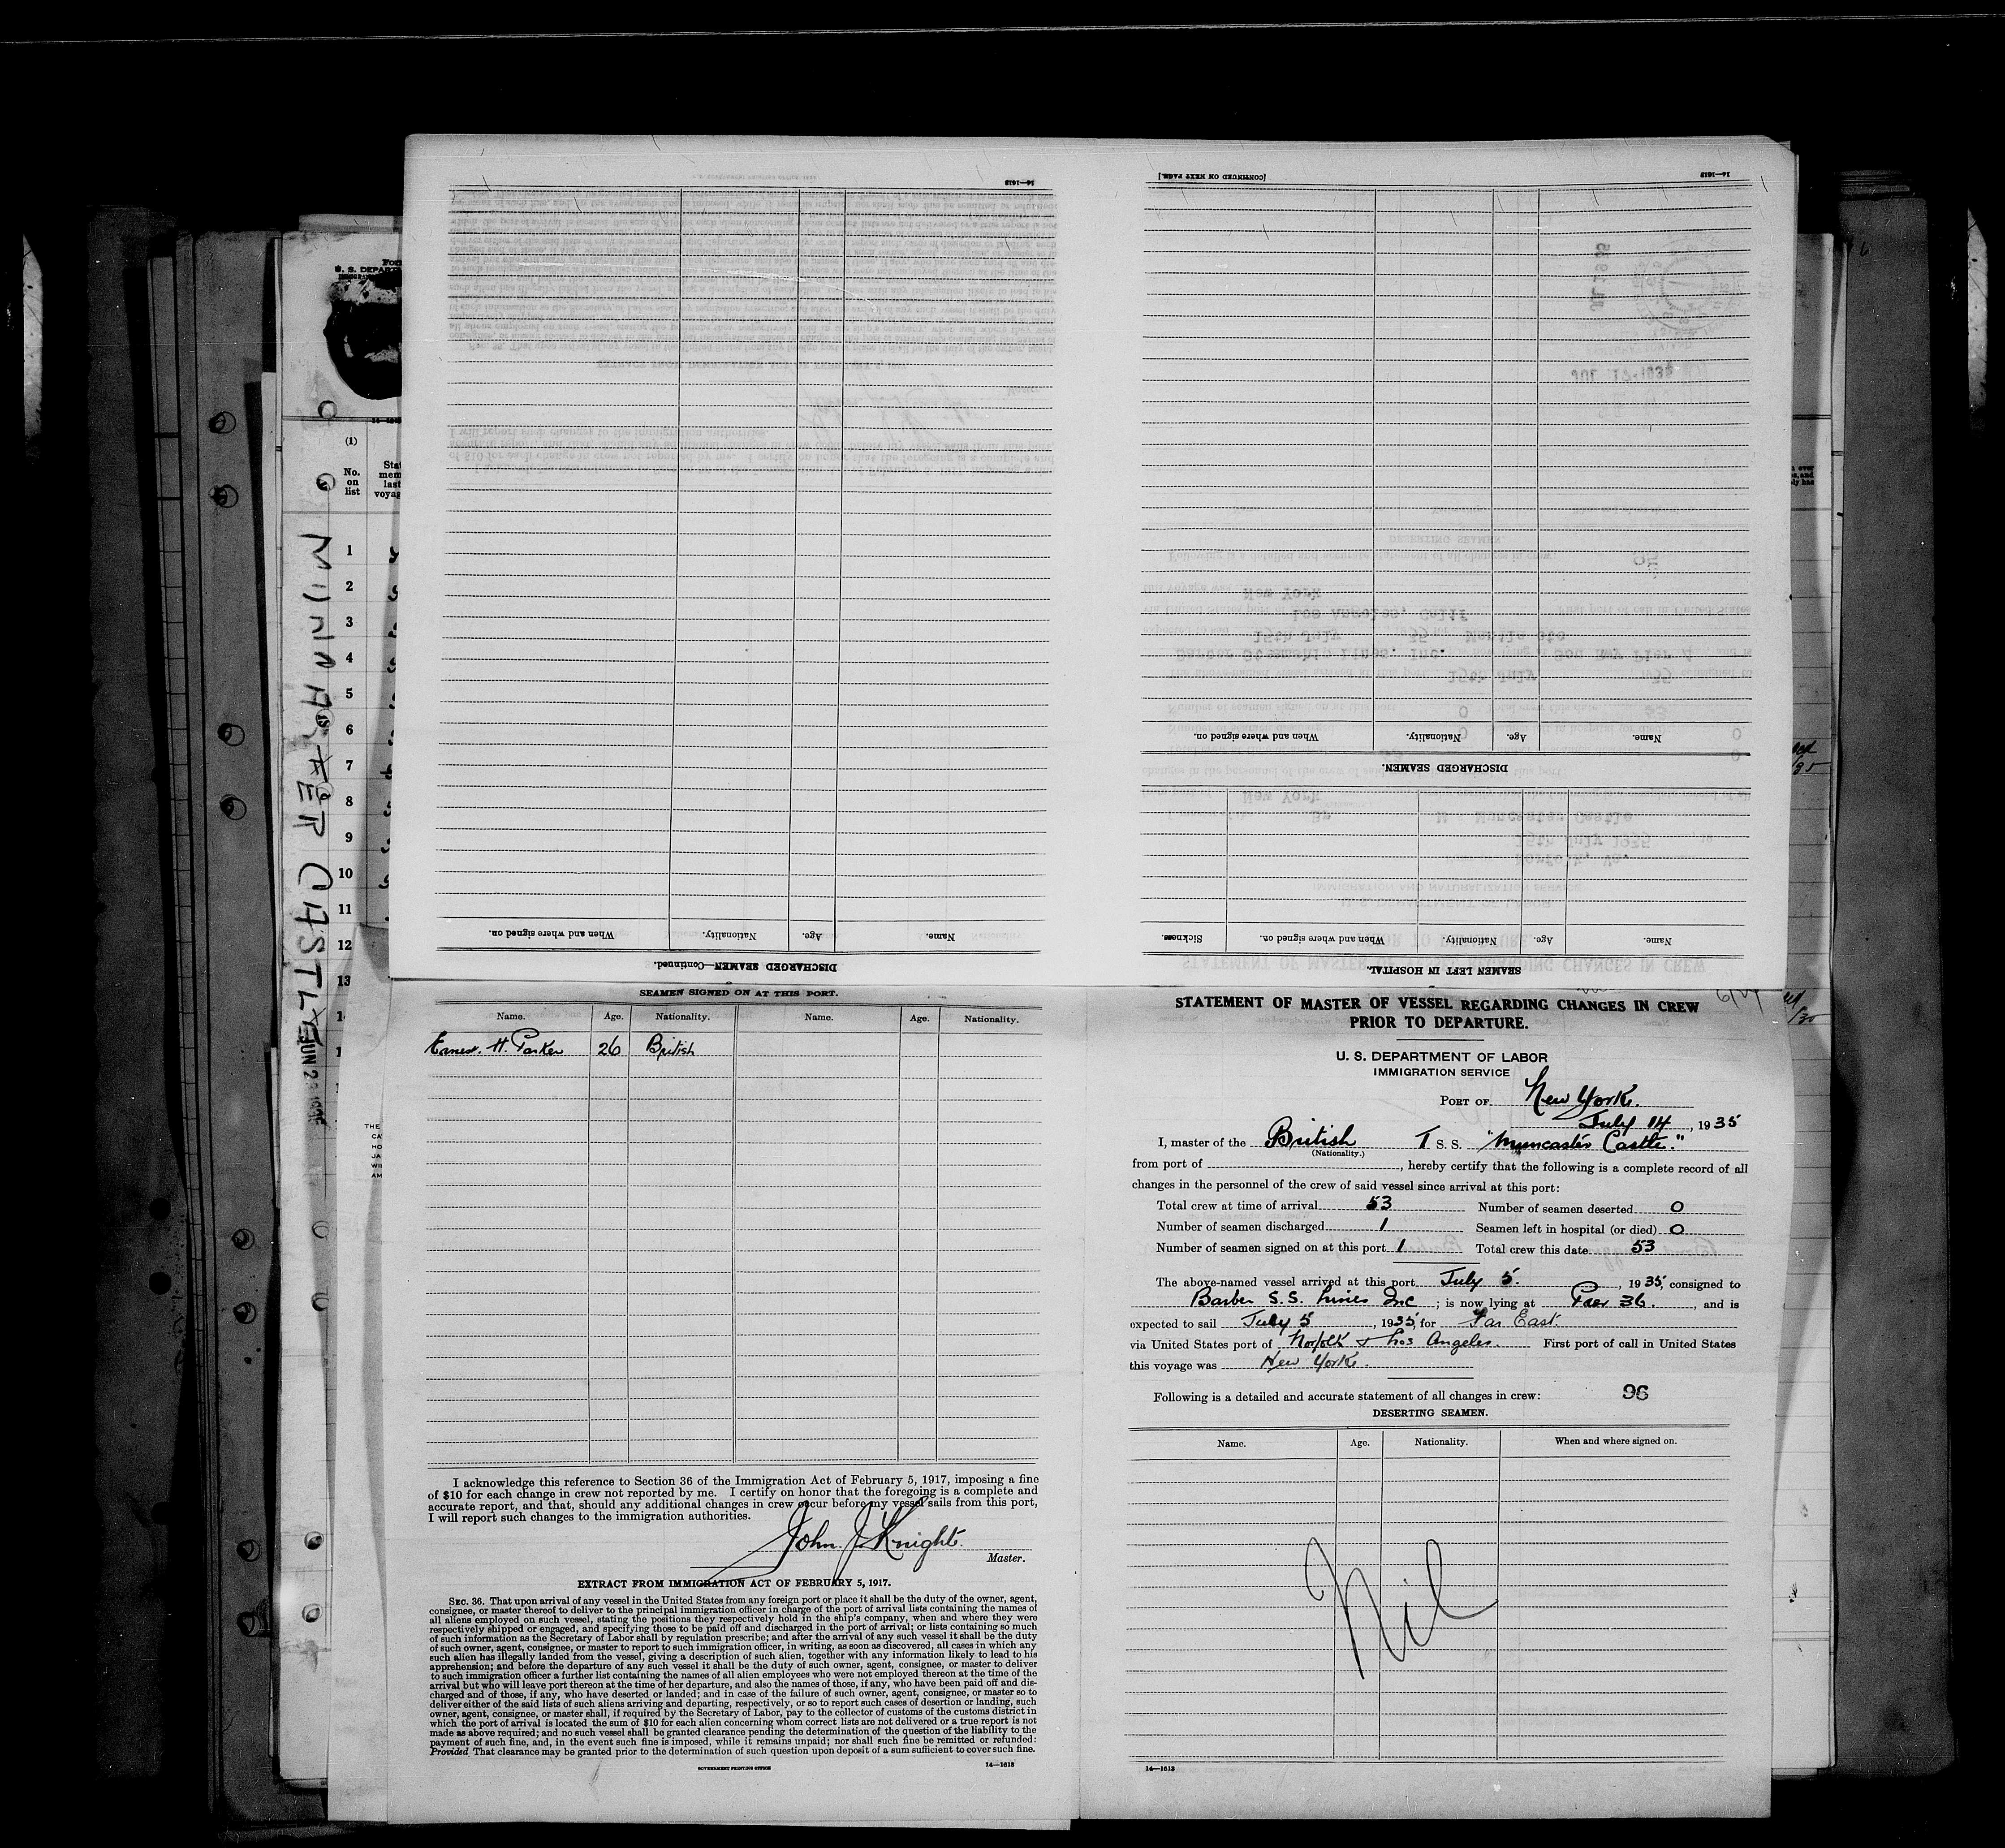 [CONTINUED ON NEXT PAGE.]
14—1613
14—1613
When and where signed on.
Nationality.
Age.
Name.
DISCHARGED SEAMEN.
Sickness.
When and where signed on.
Nationality.
Age.
Name.
SEAMEN LEFT IN HOSPITAL.
When and where signed on.
Nationality.
Age.
Name.
DISCHARGED SEAMEN—Continued.
(1)
No.
on
list
1
2
3
4
5
6
7
8
9
10
11
12
13
SEAMEN SIGNED ON AT THIS PORT.
Name. Age. Nationality. Name. Age. Nationality.
Ernest. H. Parker 26 British
I acknowledge this reference to Section 36 of the Immigration Act of February 5, 1917, imposing a fine
of $10 for each change in crew not reported by me. I certify on honor that the foregoing is a complete and
accurate report, and that, should any additional changes in crew occur before my vessel sails from this port,
I will report such changes to the immigration authorities.
John. J. Knight.
Master.
EXTRACT FROM IMMIGRATION ACT OF FEBRUARY 5, 1917.
SEC. 36. That upon arrival of any vessel in the United States from any foreign port or place it shall be the duty of the owner, agent,
consignee, or master thereof to deliver to the principal immigration officer in charge of the port of arrival lists containing the names of
all aliens employed on such vessel, stating the positions they respectively hold in the ship's company, when and where they were
respectively shipped or engaged, and specifying those to be paid off and discharged in the port of arrival; or lists containing so much
of such information as the Secretary of Labor shall by regulation prescribe; and after the arrival of any such vessel it shall be the duty
of such owner, agent, consignee, or master to report to such immigration officer, in writing, as soon as discovered, all cases in which any
such alien has illegally landed from the vessel, giving a description of such alien, together with any information likely to lead to his
apprehension; and before the departure of any such vessel it shall be the duty of such owner, agent, consignee, or master to deliver
to such immigration officer a further list containing the names of all alien employees who were not employed thereon at the time of the
arrival but who will leave port thereon at the time of her departure, and also the names of those, if any, who have been paid off and dis-
charged and of those, if any, who have deserted or landed; and in case of the failure of such owner, agent, consignee, or master so to
deliver either of the said lists of such aliens arriving and departing, respectively, or so to report such cases of desertion or landing, such
owner, agent, consignee, or master shall, if required by the Secretary of Labor, pay to the collector of customs of the customs district in
which the port of arrival is located the sum of $10 for each alien concerning whom correct lists are not delivered or a true report is not
made as above required; and no such vessel shall be granted clearance pending the determination of the question of the liability to the
payment of such fine, and, in the event such fine is imposed, while it remains unpaid; nor shall such fine be remitted or refunded:
Provided That clearance may be granted prior to the determination of such question upon deposit of a sum sufficient to cover such fine.
GOVERNMENT PRINTING OFFICE
14—1613
STATEMENT OF MASTER OF VESSEL REGARDING CHANGES IN CREW
PRIOR TO DEPARTURE.
U. S. DEPARTMENT OF LABOR
IMMIGRATION SERVICE
PORT OF New York.
July 14, 1935
I, master of the British T S. S. "Muncaster Castle."
(Nationality.)
from port of , hereby certify that the following is a complete record of all
changes in the personnel of the crew of said vessel since arrival at this port:
Total crew at time of arrival 53 Number of seamen deserted 0
Number of seamen discharged 1 Seamen left in hospital (or died) 0
Number of seamen signed on at this port 1 Total crew this date 53
The above-named vessel arrived at this port July 5. , 1935, consigned to
Barber S.S. Lines Inc ; is now lying at Pier 36. , and is
expected to sail July 5 , 1935, for Far East.
via United States port of Norfolk & Los Angeles. First port of call in United States
this voyage was New York.
Following is a detailed and accurate statement of all changes in crew: 96
DESERTING SEAMEN.
Name. Age. Nationality. When and where signed on.
Nil
14—1613